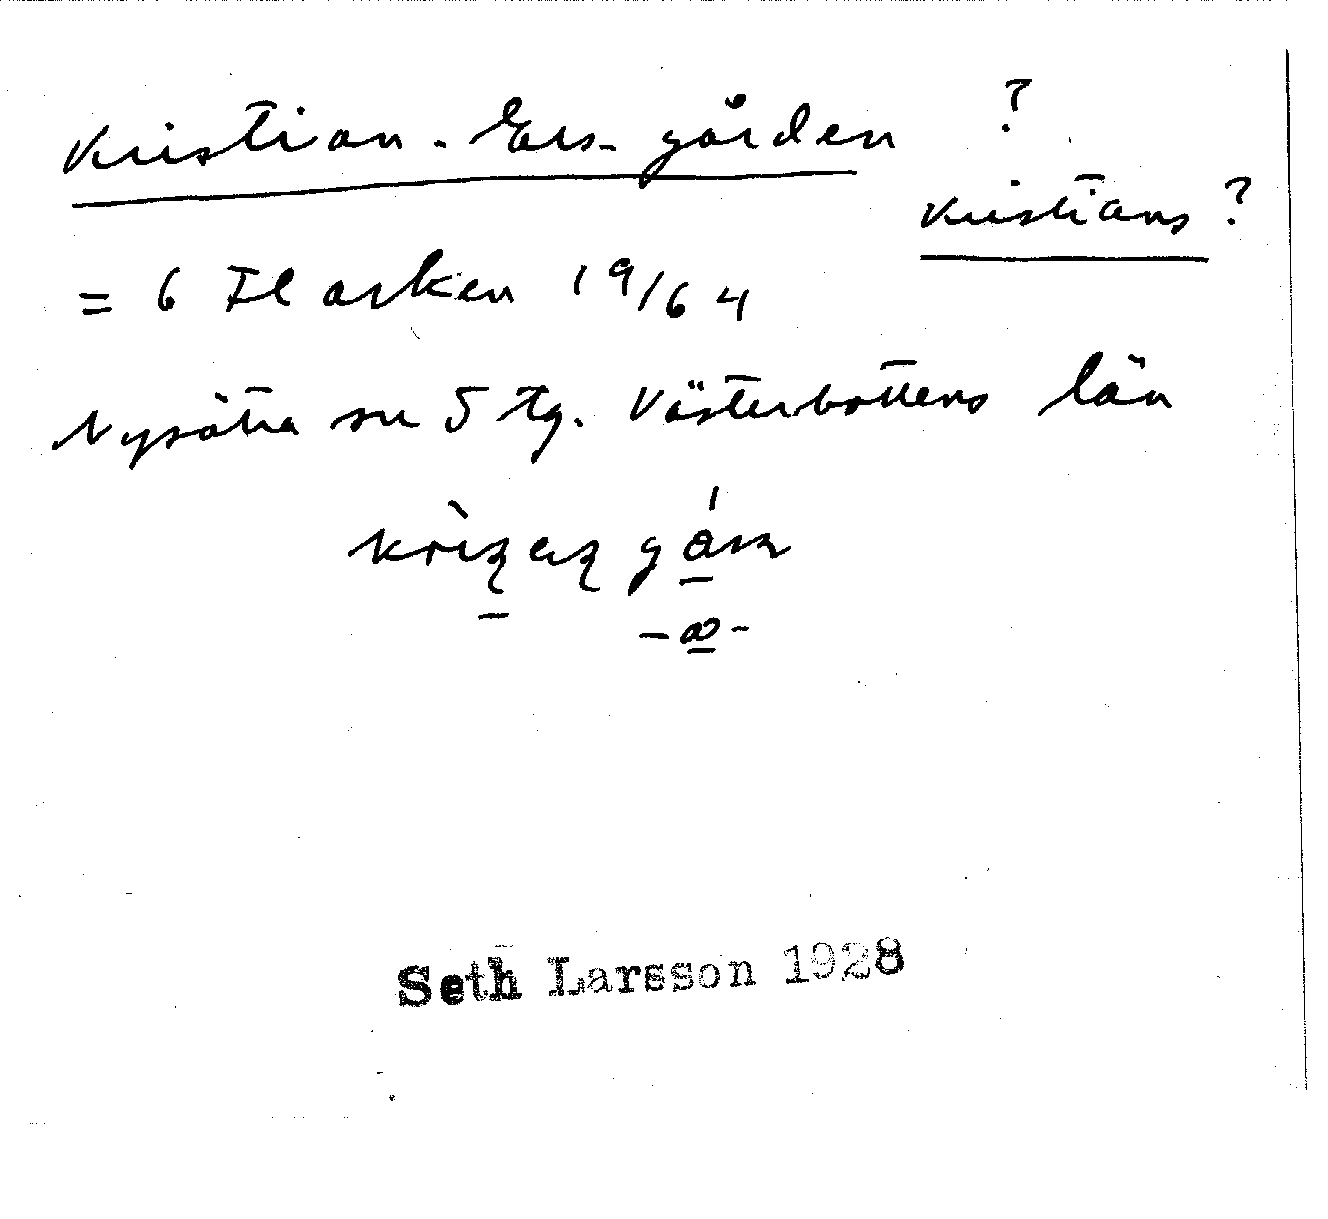 Kristian-Ers-gården ?
Kristians ?
= 6 Flarken 19/64
Nysätra sn 5 tg. Västerbottens län
Seth Larsson 1928